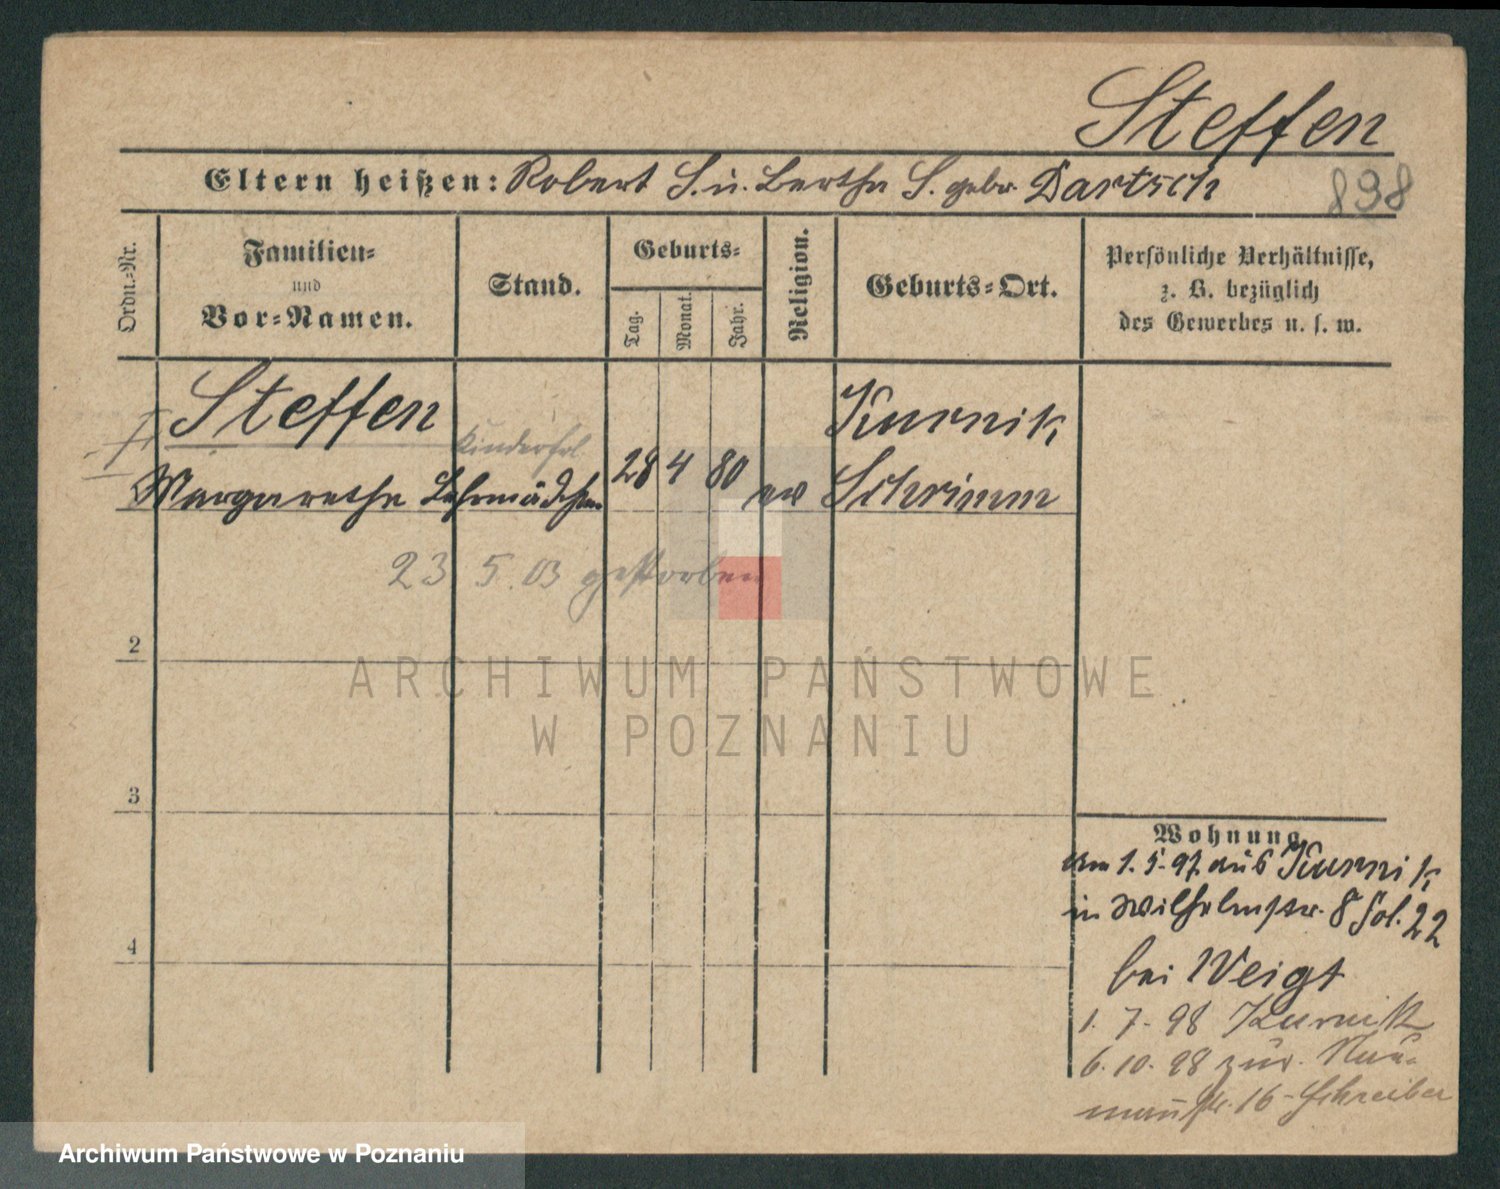 Steffen
Eltern heißen: Robert S. u. Bertha S. gebr. Dartsch
898
Ordn.-Nr.
Familien-
und
Vor-Namen.
Stand.
Geburts-
Tag.
Monat.
Jahr.
Religion.
Geburts-Ort.
Persönliche Verhältnisse,
z. B. bezüglich
des Gewerbes u. s. w.
Steffen Kurnik
Kinderfrl.
Margarethe Lehrmädchen 28 4 80 ev Schrimm
23 5. 03 gestorben
2
3
4
ARCHIWUM PAŃSTWOWE
W POZNANIU
Wohnung
Am 1. 5. 97 aus Kurnik
in Wilhelmstr. 8 Fol. 22
bei Weigt
1. 7. 98 Kurnik
6. 10. 98 zur. Nau-
mannstr. 16 Schreiber
Archiwum Państwowe w Poznaniu